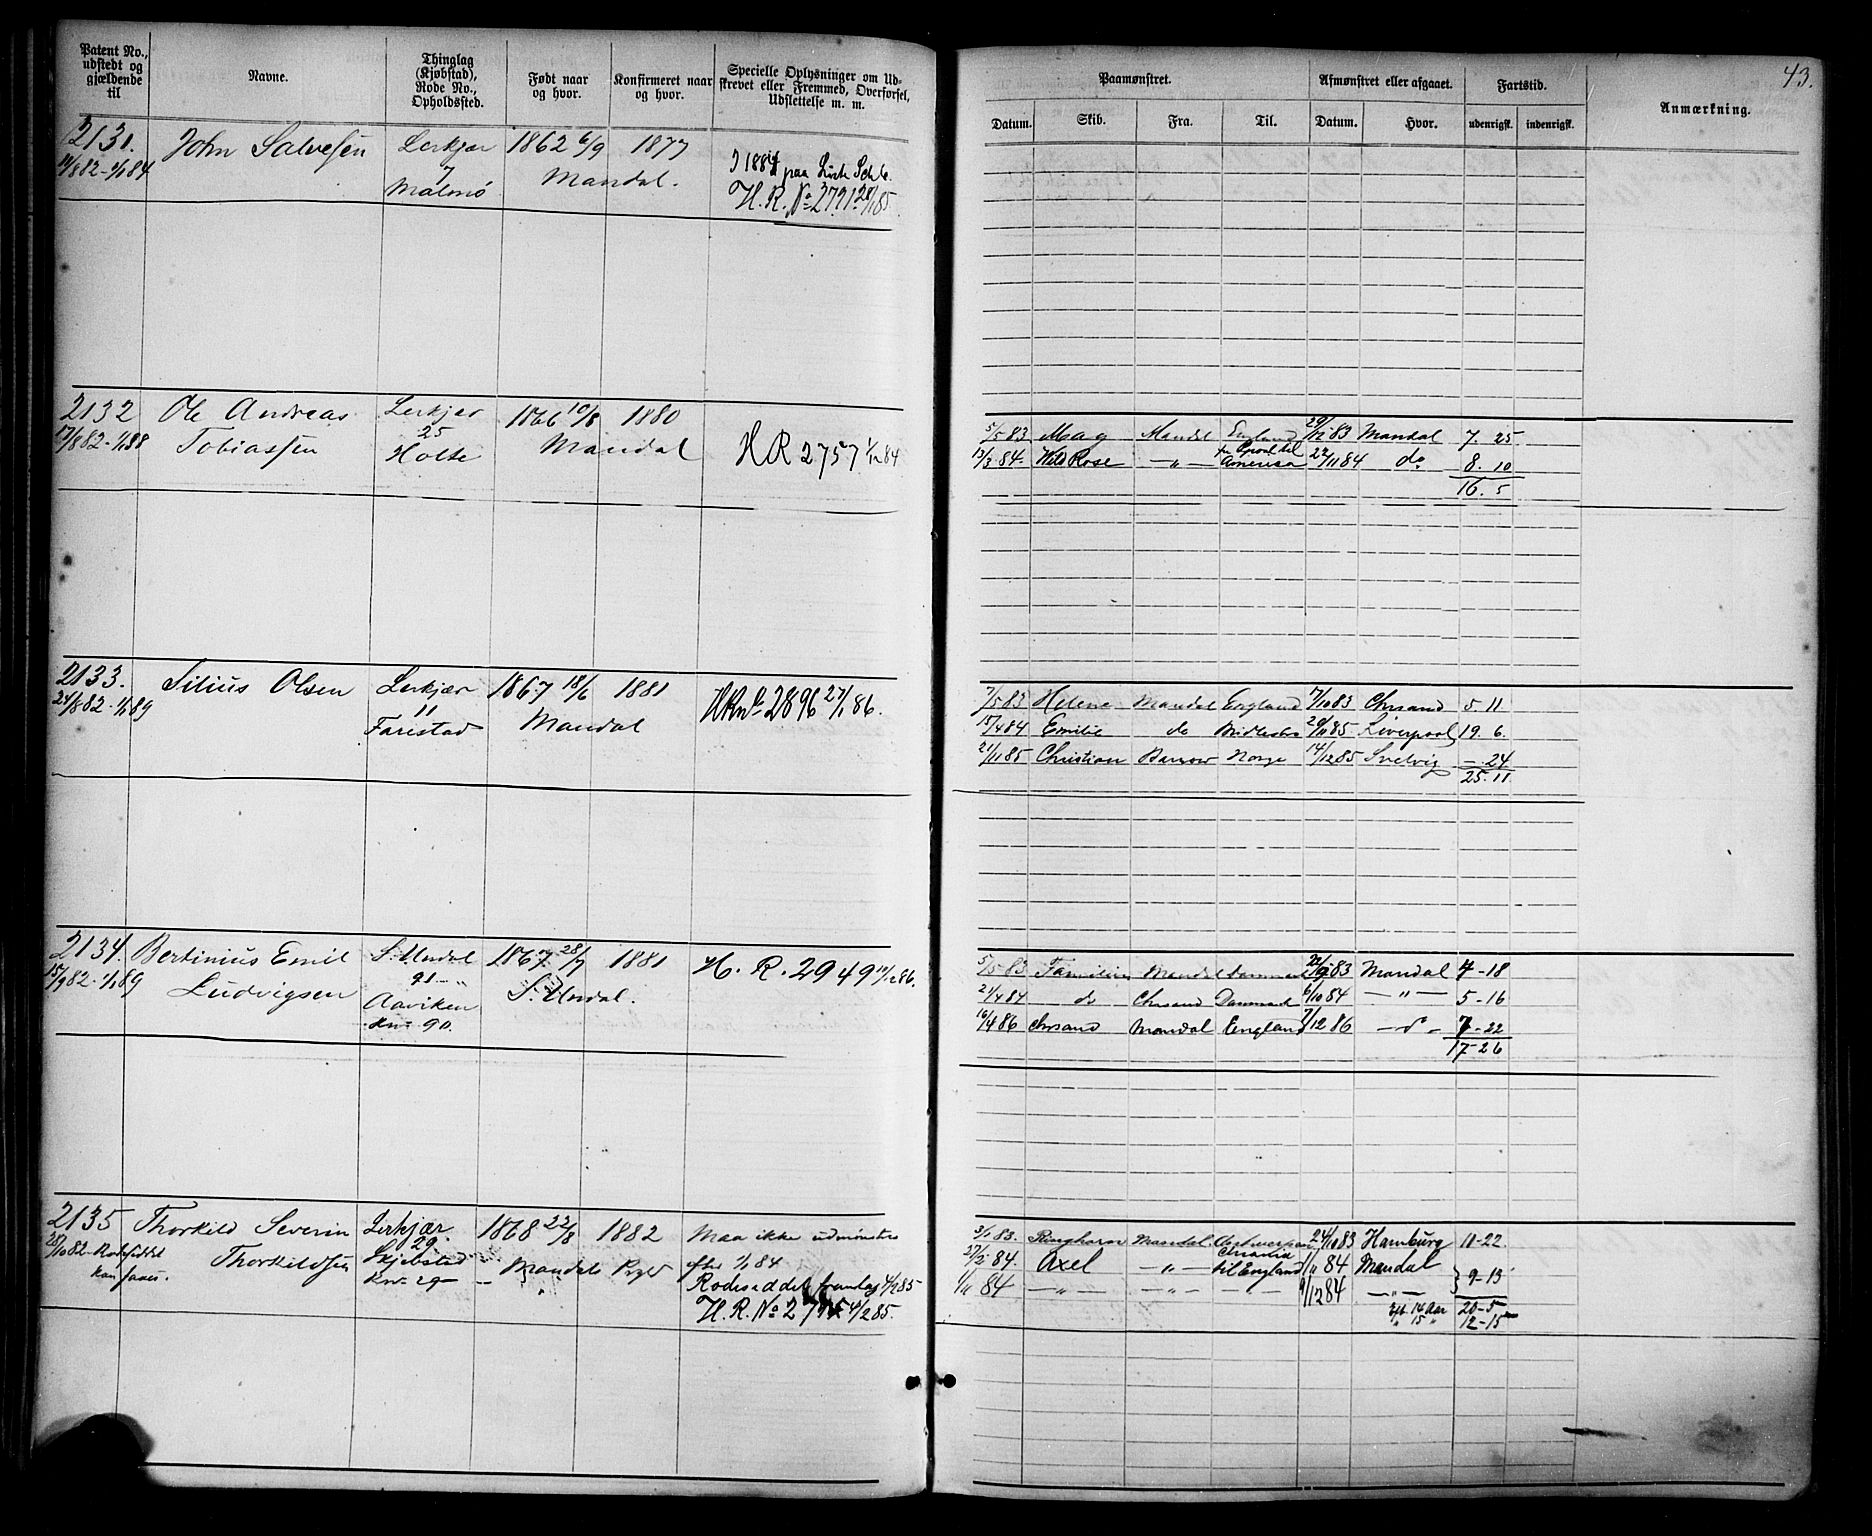 43.
Patent No., udstedt og gjældende til
Navne.
Thinglag (Kjøbstad), Rode No., Opholdssted.
Født naar og hvor.
Konfirmeret naar og hvor.
Specielle Oplysninger om Udskrevet eller Fremmed, Overførsel, Udslettelse m. m.
Paamønstret.
Afmønstret eller afgaaet.
Fartstid.
Anmærkning.
Datum. Skib. Fra. Til. Datum. Hvor. udenrigsk. indenrigsk.
2131. John Salvesen Lerkjær 1862 6/9 1877
7 Mandal.
Malmø
H. R. No 2791 28/1 85.
2132 Ole Andreas Lerkjær 1866 10/8 1880
17/8 82 - 1/1 88 Tobiassen 25 Mandal
Holte HR 2757 1/12 84
5/5 83 Mag Mandal England 29/12 83 Mandal 7. 25
13/3 84. Wild Rose — " — Amerika 22/11 84 do 8. 10
16. 5
2133. Silius Olsen Lerkjær 1867 18/6 1881
24/8 82 - 1/1 89 11 Mandal
Farestad HRNo 2896 27/1 86.
7/5 83 Helene Mandal England 7/10 83 Chrsand 5. 11
15/4 84 Emilie do 20/11 85 Liverpool 19. 6.
21/11 85 Christian Barrow Norge 14/12 85 Svelvig — . 24
25. 11
2134. Bertinius Emil S. Undal 1867 28/7 1881 H. R. 2949 17/12 86.
15/9 82 - 1/1 89 Ludvigsen 91 S. Undal.
Aaviken
90.
5/5 83 Familien Mandal Danmark 83 Mandal 7 - 18
21/4 84 do Chrsand Danmark 6/10 84 — " — 5 - 16
16/4 86 Chrsand Mandal England 7/12 86 7 - 22
17 - 26
2135 Thorkild Severin Lerkjær. 1868 22/8 1882 Maa ikke udmønstres
28/10 82 - Thorkildsen 29. Mandal efter 1/1 84
Skjebstad
Rodeseddel fremlag 4/2 85
H. R. No 4/2 85.
3/1 83. Ringhorn Mandal Antwerpen 24/11 83 Hamburg 11 - 22.
27/2 84. Axel — " — til England 1/11 84 Mandal
1/11 84 — " — — " — — " — 9/12 84 — " — 9 - 13
14 Aar 20 - 5
" 15 " 12 - 15